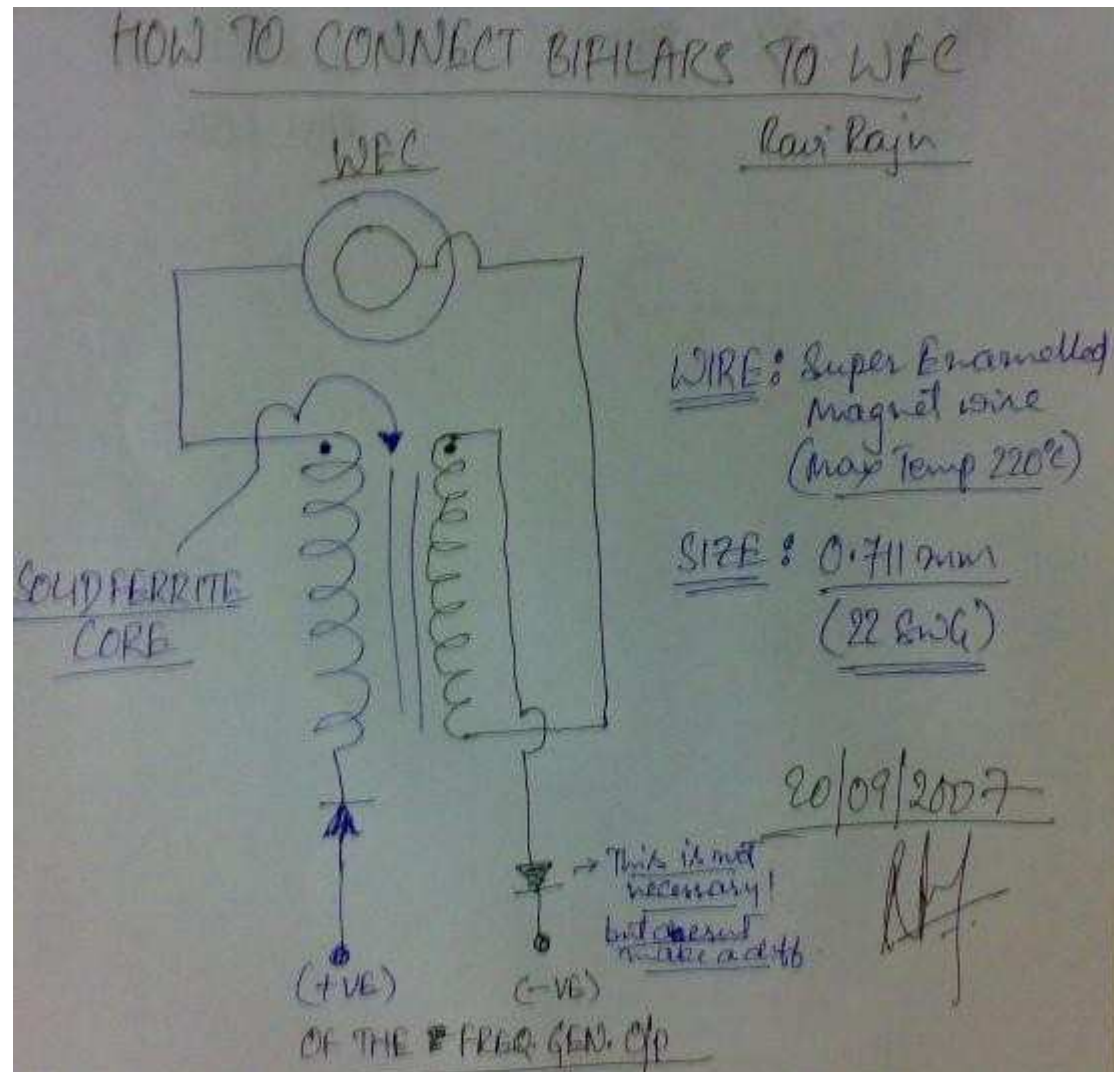 HOW TO CONNECT BIFILARS TO WFC
Ravi Raju
WFC
WIRE: Super Enamelled
magnet wire
(Max Temp 220°C)
SIZE: 0.711 mm
(22 SWG)
SOLID FERRITE
CORE
20/09/2007
→ This is not
necessary!
but doesnt
make a diff
(+VE) (-VE)
OF THE FREQ. GEN. O/P